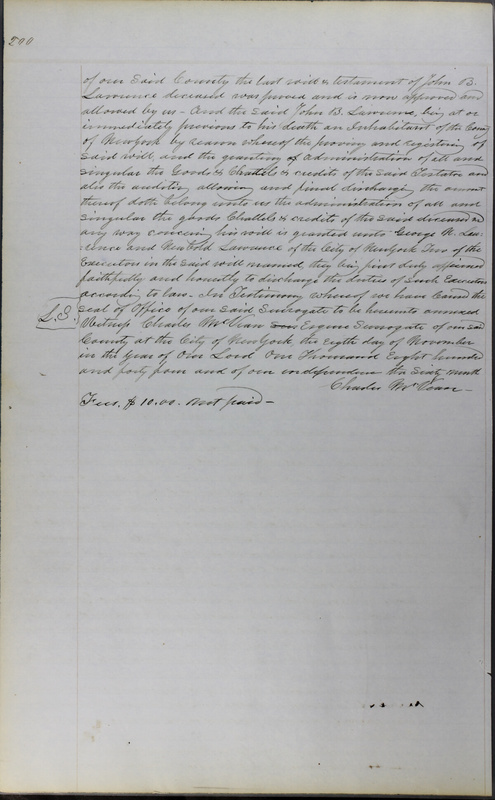 200
of our Said County the last will & testament of John B.
Lawrence deceased was proved and is now approved and
allowed by us - And the Said John B. Lawrence, being at or
immediately previous to his death an Inhabitant of the County
of New York by reason whereof the proving and registering of
said will and the granting of administration of all and
singular the Goods & Chattels & credits of the Said Testator and
also the auditing allowing and final discharging the account
thereof doth belong unto us the administration of all and
singular the goods Chattels & credits of the said deceased and
any way concerning his will is granted unto George N. Law-
-rence and Newbold Lawrence of the City of New York Two of the
Executors in the said will named, they being first duly affirmed
faithfully and honestly to discharge the duties of Such Executors
according to law - In Testimony whereof we have Caused the
L.S. seal of Office of our Said Surrogate to be hereunto annexed
Witness Charles McVean Esquire Surrogate of our said
County at the City of New York the eigth day of November
in the Year of Our Lord One Thousand Eight hundred
and forty four and of our independence the Sixty ninth
Charles McVean -
Fees. $10.00. Not paid -